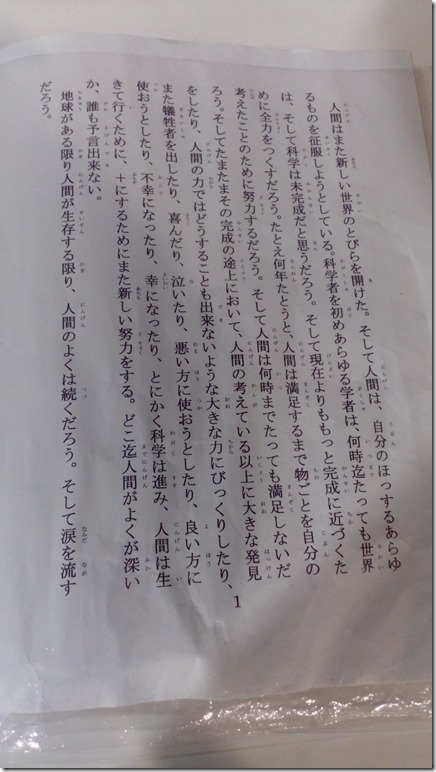 人間はまた新しい世界のとびらを開けた。そして人間は、自分のほっするあらゆ
るものを征服しようとしている。科学者を初めあらゆる学者は、何時迄たっても世界
は、そして科学は未完成だと思うだろう。そして現在よりももっと完成に近づくた
めに全力をつくすだろう。たとえ何年たとうと、人間は満足するまで物ごとを自分の
考えたことのために努力するだろう。そして人間は何時までたっても満足しないだ
ろう。そしてたまたまその完成の途上において、人間の考えている以上に大きな発見
をしたり、人間の力ではどうすることも出来ないような大きな力にびっくりしたり、
また犠牲者を出したり、喜んだり、泣いたり、悪い方に使おうとしたり、良い方に
使おうとしたり、不幸になったり、幸になったり、とにかく科学は進み、人間は生
きて行くために、+にするためにまた新しい努力をする。どこ迄人間がよくが深い
か、誰も予言出来ない。
地球がある限り人間が生存する限り、人間のよくは続くだろう。そして涙を流す
だろう。
1